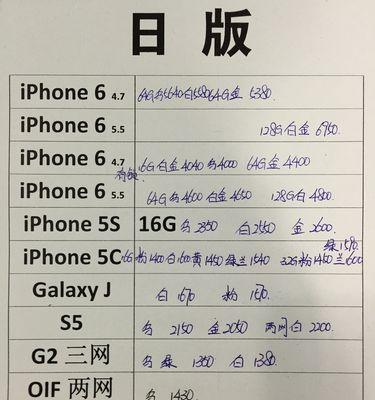 日 版
iPhone 6 4.7 64G 5640 白5580 64G金 5380.
iPhone 6 5.5 128G白金 6950.
iPhone 6 4.7 16G白金4040 4000 64G金 4400
有锁
iPhone 6 5.5 64G 4600 白金4650 128G白4800.
iPhone 5S 16G 2350 白2550 金2600.
绿1590.
iPhone 5C 16G粉1400 白1600 黄1450 绿兰1540 32G粉1450 兰1600
Galaxy J 白1570 粉1570.
S5 2150 金2050 两网白2200.
G2 三网 1350 白1380.
OIF 两网 1430.